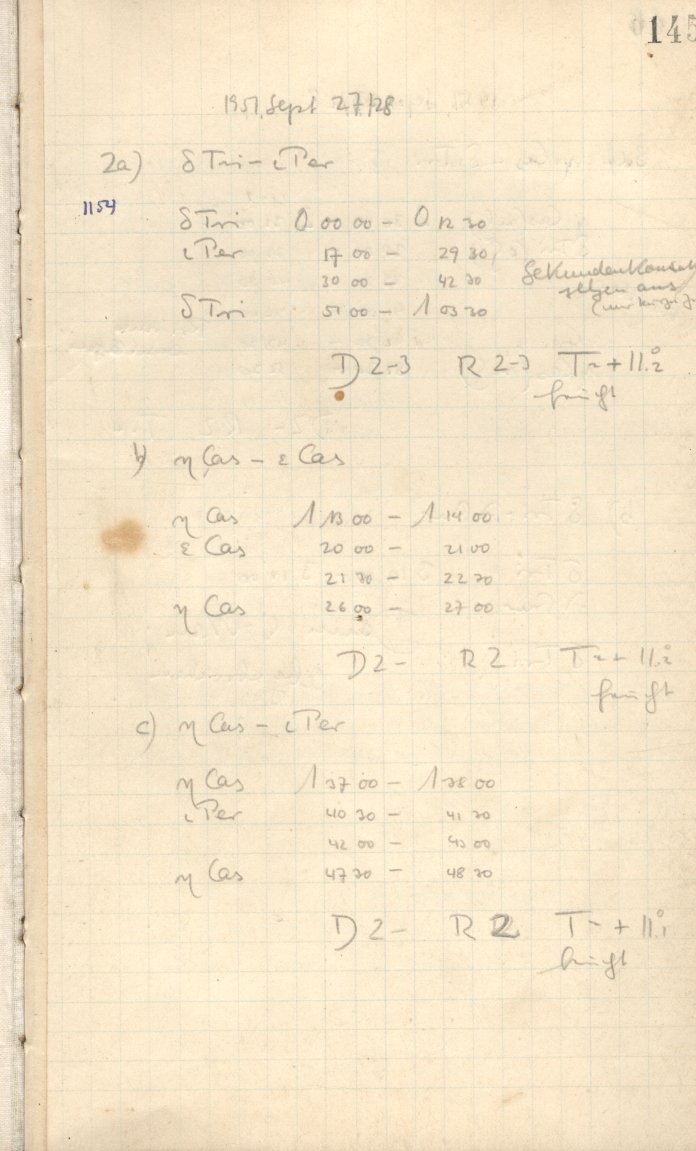 145
1951, Sept 27/28
2a) δ Tri - ι Per
1154
δ Tri 0 00 00 - 0 12 30
ι Per 17 00 - 29 30
30 00 - 42 30
Sekundenkontakte
setzen aus
δ Tri 51 00 - 1 03 30
D 2-3 R 2-3 T = + 11.°2
feucht
b) η Cas - ε Cas
η Cas 1 13 00 - 1 14 00
ε Cas 20 00 - 21 00
21 30 - 22 30
η Cas 26 00 - 27 00
D 2- R 2 T = + 11.°2
feucht
c) η Cas - ι Per
η Cas 1 37 00 - 1 38 00
ι Per 40 30 - 41 30
42 00 - 43 00
η Cas 47 30 - 48 30
D 2- R 2 T = + 11.°1
feucht